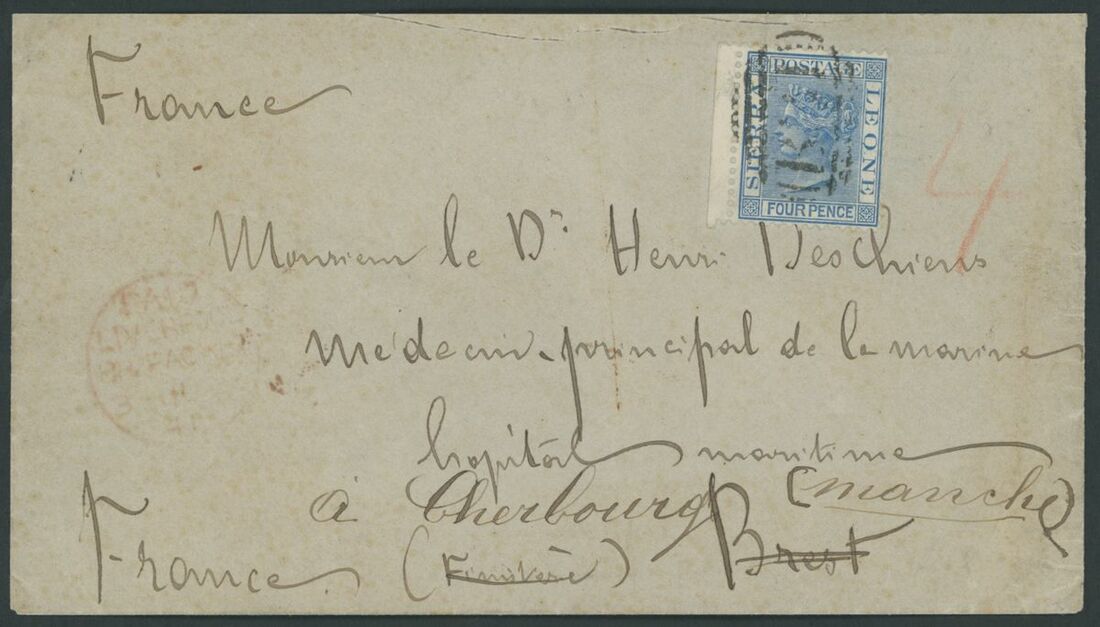 France
SIERRA LEONE
POSTAGE
FOUR PENCE
4
Monsieur le Dr Henri DesChiens
médecin-principal de la marine
hôpital maritime
à Cherbourg (manche)
France (Finistère) Brest